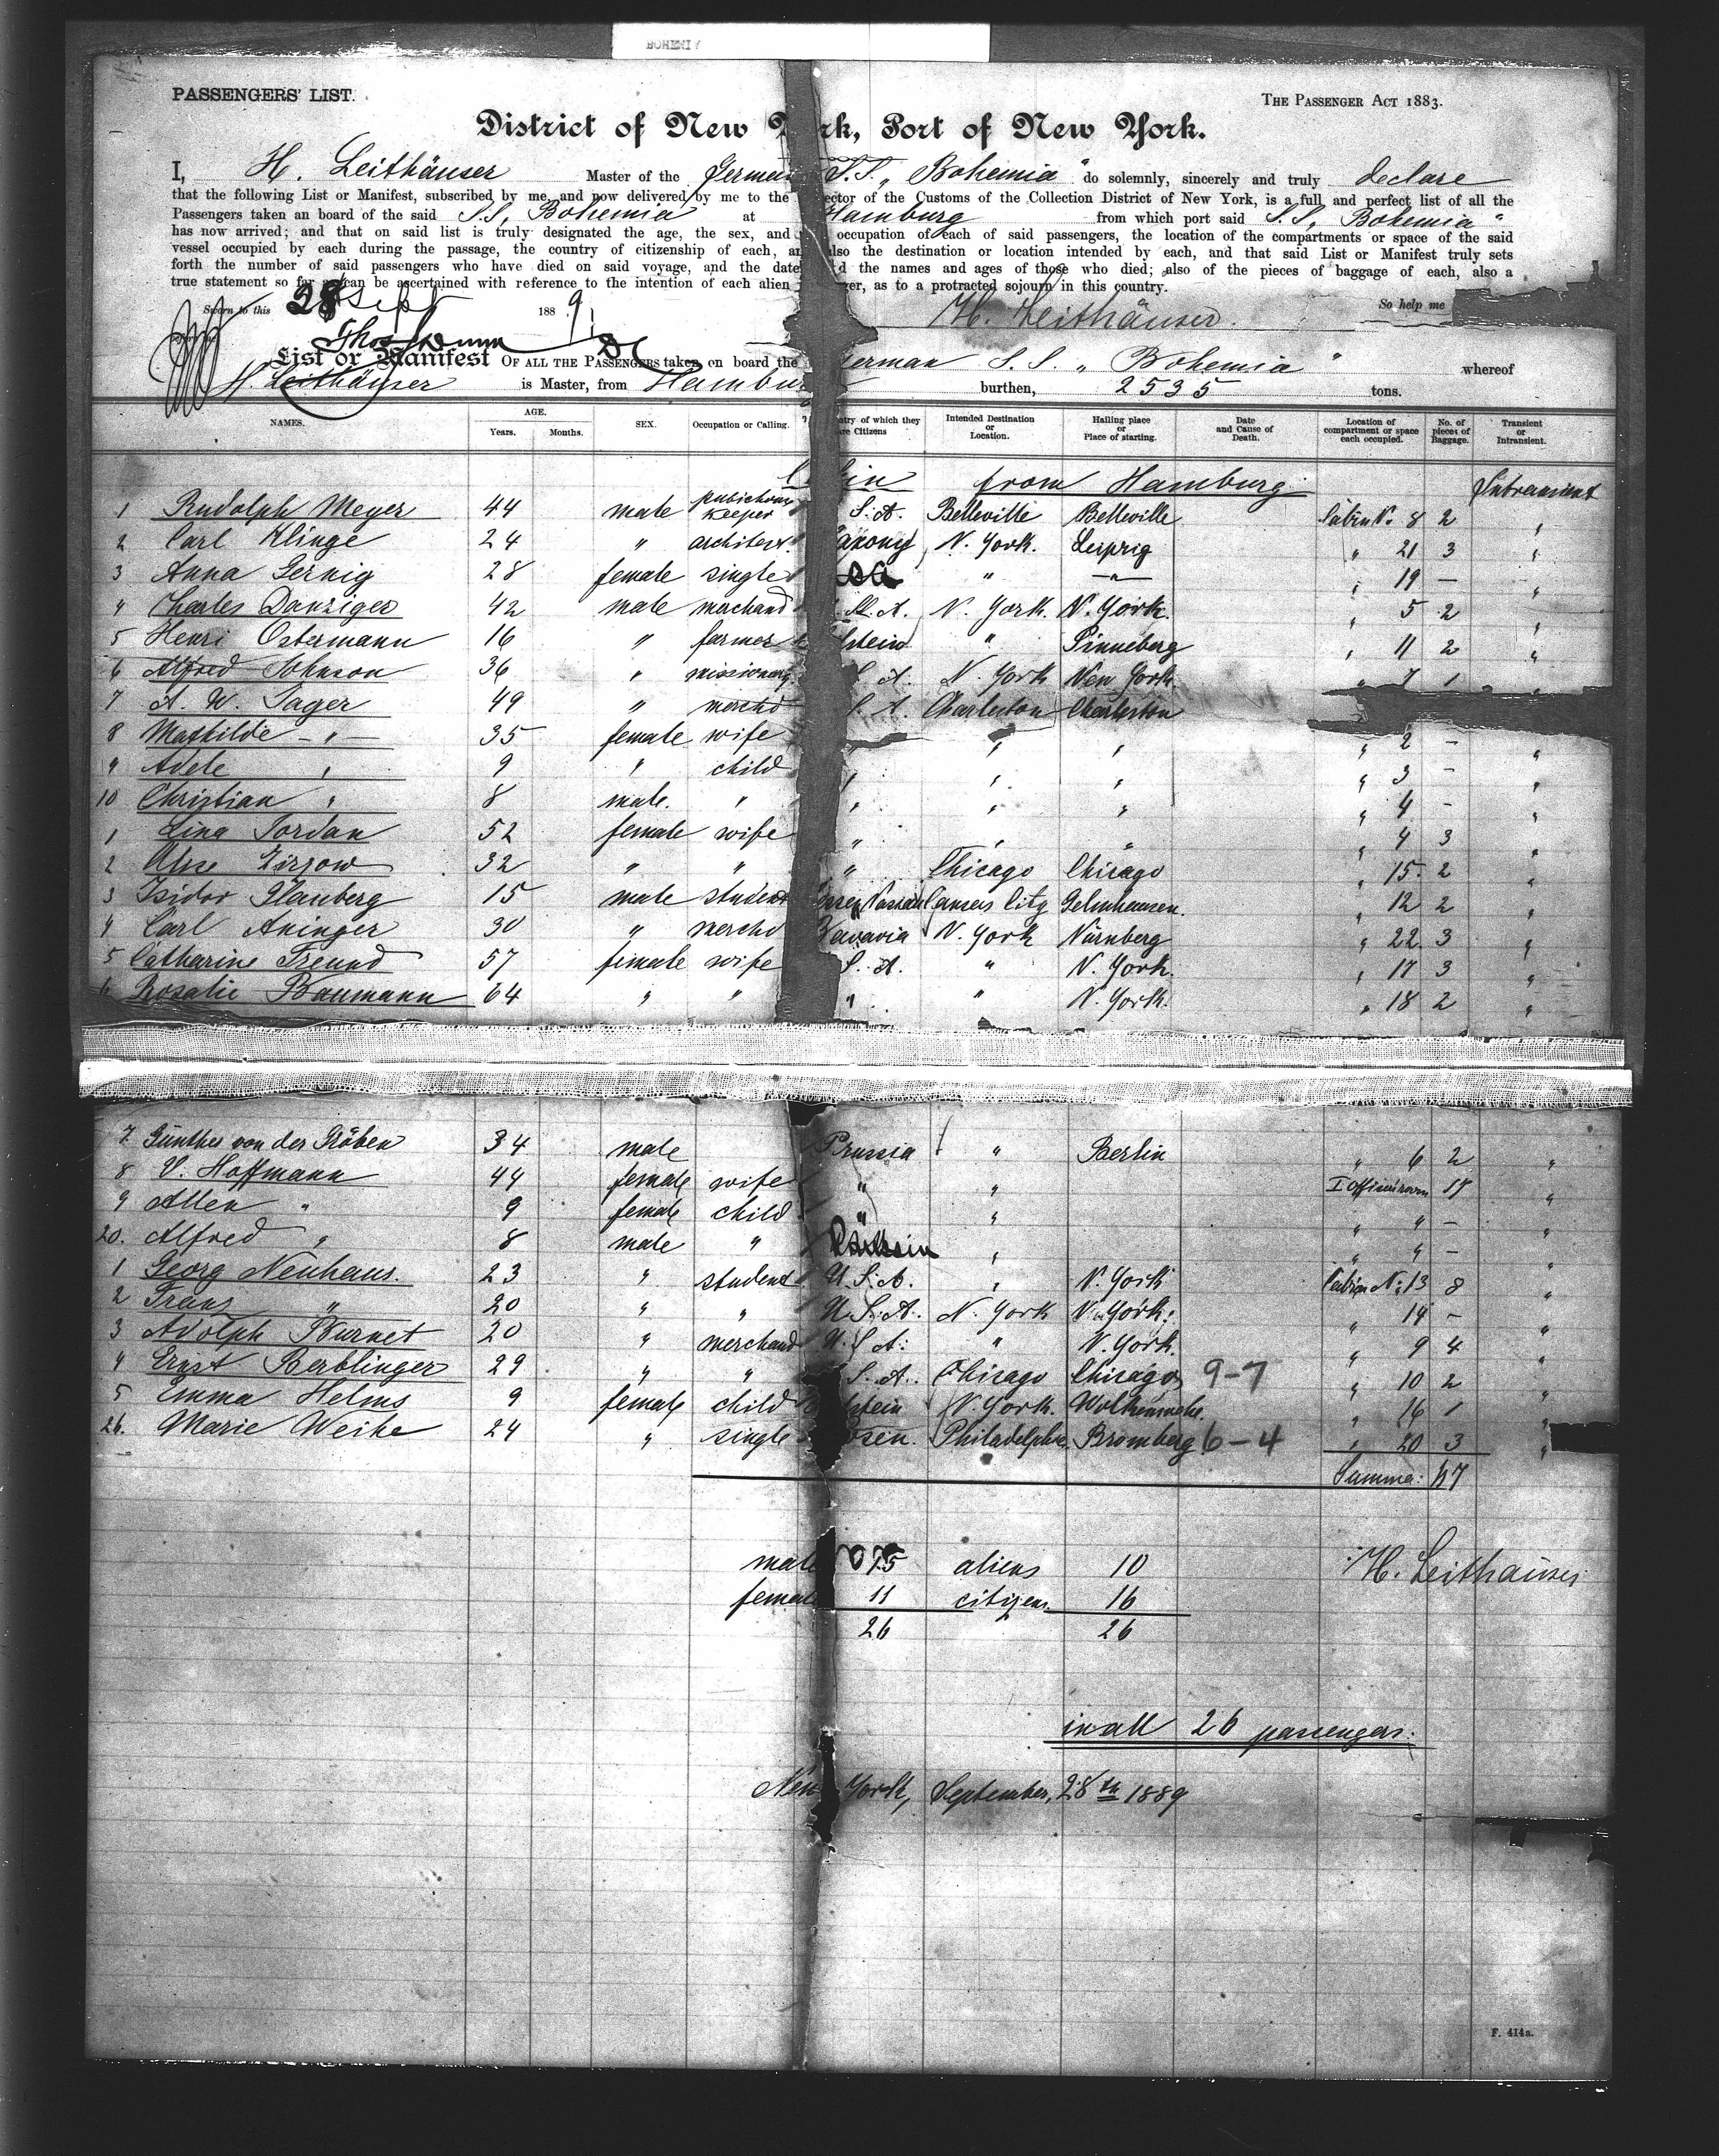 BOHEMI
PASSENGERS' LIST.
THE PASSENGER ACT 1883.
District of New York, Port of New York.
I, H. Leithäuser Master of the German S.S. „Bohemia" do solemnly, sincerely and truly declare
that the following List or Manifest, subscribed by me, and now delivered by me to the ector of the Customs of the Collection District of New York, is a full and perfect list of all the
Passengers taken an board of the said S.S. Bohemia at Hamburg from which port said S.S. Bohemia"
has now arrived; and that on said list is truly designated the age, the sex, and occupation of each of said passengers, the location of the compartments or space of the said
vessel occupied by each during the passage, the country of citizenship of each, an also the destination or location intended by each, and that said List or Manifest truly sets
forth the number of said passengers who have died on said voyage, and the date d the names and ages of those who died; also of the pieces of baggage of each, also a
true statement so far as can be ascertained with reference to the intention of each alien ger, as to a protracted sojourn in this country.
Sworn to this 28 Sept 1889 H. Leithäuser. So help me
List or Manifest OF ALL THE PASSENGERS taken on board the German S.S. „Bohemia" whereof
H. Leithäuser is Master, from Hamburg burthen, 2535 tons.
NAMES. AGE. Years. Months. SEX. Occupation or Calling. ntry of which they are Citizens Intended Destination or Location. Hailing place or Place of starting. Date and Cause of Death. Location of compartment or space each occupied. No. of pieces of Baggage. Transient or Intransient.
from Hamburg
1 Rudolph Meyer 44 male keeper S.A. Belleville Belleville Cabin N. 8 2 Intransient
2 Carl Klinge 24 " architect axony N. York. Leipzig " 21 3 "
3 Anna Gernig 28 female single " — " — " 19 — "
4 Charles Danziger 42 male merchand S. A. N. York. N. York. " 5 2 "
5 Henri Ostermann 16 " farmer lstein " Pinneberg " 11 2 "
6 Alfred Johnson 36 " missionary S. A. N. York New York " 7 1 "
7 A. W. Jager 49 " merchd S. A. Charleston Charleston
8 Mathilde — " — 35 female wife " " " 2 — "
9 Adele " 9 " child " " " " 3 — "
10 Christian " 8 male. " " " " " 4 — "
1 Lina Jordan 52 female wife " " " " 4 3 "
2 32 " " " Chicago Chicago " 15. 2 "
3 Isidor Flanberg 15 male student Nassau Cansas City Gelnhausen. " 12 2 "
4 Carl Aninger 30 " merchd Bavaria N. York Nürnberg " 22. 3 "
5 Catharine Freund 57 female wife S. A. " N. York. " 17 3 "
6 Rosalie Baumann 64 " " " " N. York. " 18 2 "
7. Günther von der Gröben 34 male Prussia " Berlin " 6 2 "
8 V. Hoffmann 44 female wife " " I 17 "
9 Allen " 9 female child " " " " — "
20. Alfred " 8 male " " " " — "
1 Georg Neuhaus. 23 " student U.S.A. " N. York Cabin N: 13 8 "
2 Franz " 20 " " U.S.A. N. York N. York. " 14 — "
3 Adolph 20 " merchand U.S.A. " N. York. " 9 4 "
4 Ernst Berblinger 29 " " S. A. Chicago Chicago 9-7 " 10 2 "
5 Emma Helms 9 female child lstein N. York. " 16 1 "
26. Marie Weihe 24 " single osen. Philadelphia Bromberg 6-4 " 20 3 "
Summa: 67
male 15 aliens 10 H. Leithäuser
female 11 citizens 16
26 26
in all 26 passengers.
New York, September, 28th 1889
F. 414a.